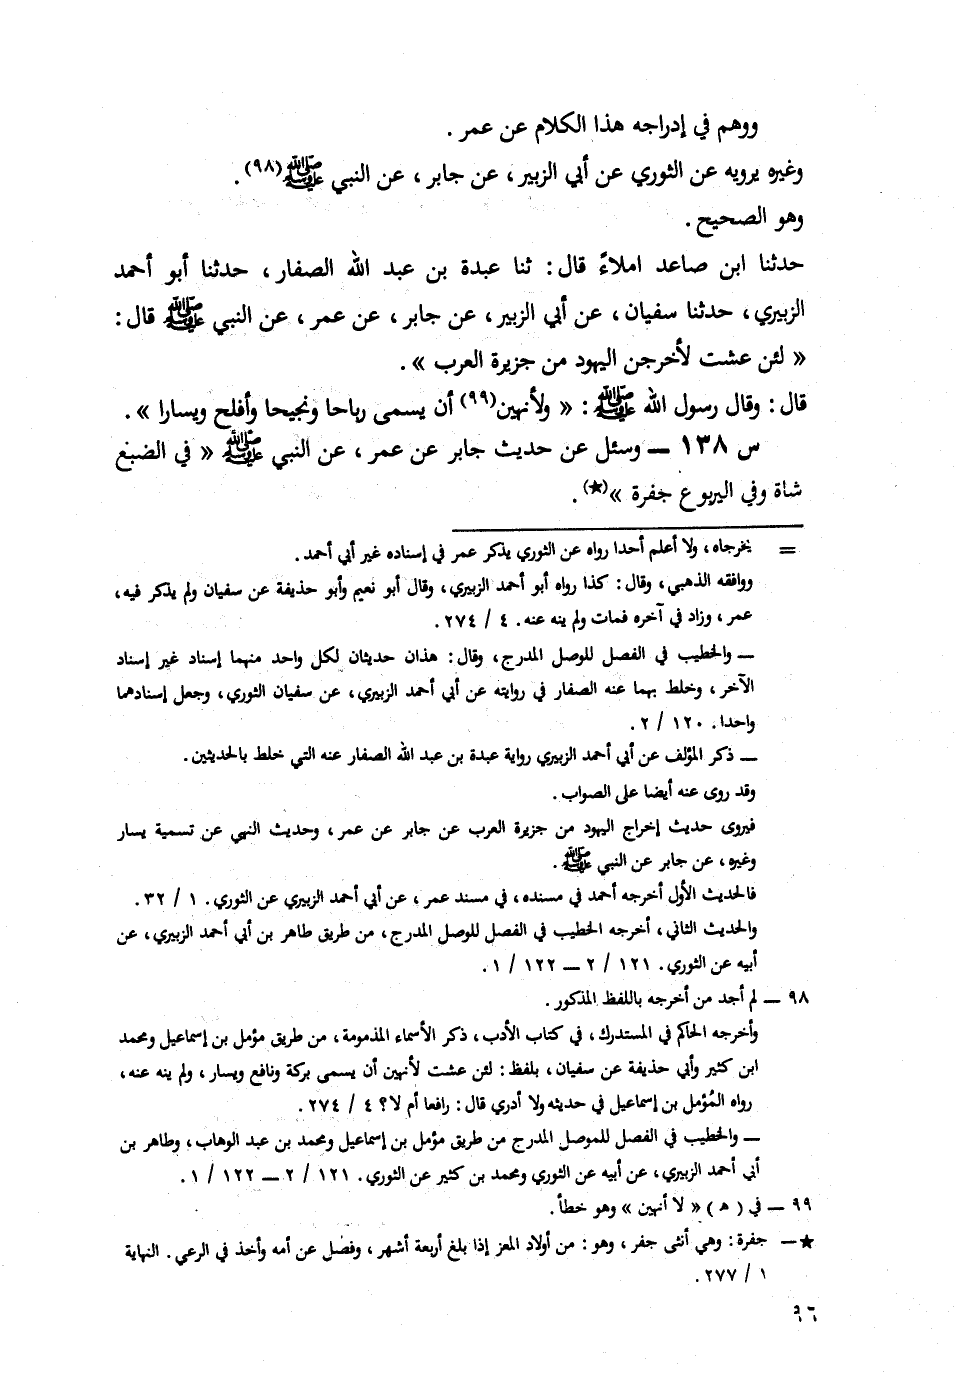 ووهم في إدراجه هذا الكلام عن عمر .
وغيره يرويه عن الثوري عن أبي الزبير ، عن جابر ، عن النبي ﷺ(٩٨) .
وهو الصحيح .
حدثنا ابن صاعد املاءً قال : ثنا عبدة بن عبد الله الصفار ، حدثنا أبو أحمد
الزبيري ، حدثنا سفيان ، عن أبي الزبير ، عن جابر ، عن عمر ، عن النبي ﷺ قال :
« لئن عشت لأخرجن اليهود من جزيرة العرب » .
قال : وقال رسول الله ﷺ : « ولأنهين(٩٩) أن يسمى رباحا ونجيحا وأفلح ويسارا » .
س ١٣٨ — وسئل عن حديث جابر عن عمر ، عن النبي ﷺ « في الضبع
شاة وفي اليربوع جفرة »(★) .
= يخرجاه ، ولا أعلم أحدا رواه عن الثوري يذكر عمر في إسناده غير أبي أحمد .
ووافقه الذهبي ، وقال : كذا رواه أبو أحمد الزبيري ، وقال أبو نعيم وأبو حذيفة عن سفيان ولم يذكر فيه ،
عمر ، وزاد في آخره فمات ولم ينه عنه . ٤ / ٢٧٤ .
— والخطيب في الفصل للوصل المدرج ، وقال : هذان حديثان لكل واحد منهما إسناد غير إسناد
الآخر ، وخلط بهما عنه الصفار في روايته عن أبي أحمد الزبيري ، عن سفيان الثوري ، وجعل إسنادهما
واحدا . ١٢٠ / ٢ .
— ذكر المؤلف عن أبي أحمد الزبيري رواية عبدة بن عبد الله الصفار عنه التي خلط بالحديثين .
وقد روى عنه أيضا على الصواب .
فيروى حديث إخراج اليهود من جزيرة العرب عن جابر عن عمر ، وحديث النهي عن تسمية يسار
وغيره ، عن جابر عن النبي ﷺ .
فالحديث الأول أخرجه أحمد في مسنده ، في مسند عمر ، عن أبي أحمد الزبيري عن الثوري . ١ / ٣٢ .
والحديث الثاني ، أخرجه الخطيب في الفصل للوصل المدرج ، من طريق طاهر بن أبي أحمد الزبيري ، عن
أبيه عن الثوري . ١٢١ / ٢ — ١٢٢ / ١ .
٩٨ — لم أجد من أخرجه باللفظ المذكور .
وأخرجه الحاكم في المستدرك ، في كتاب الأدب ، ذكر الأسماء المذمومة ، من طريق مؤمل بن إسماعيل ومحمد
ابن كثير وأبي حذيفة عن سفيان ، بلفظ : لئن عشت لأنهين أن يسمى بركة ونافع ويسار ، ولم ينه عنه ،
رواه المُؤمل بن إسماعيل في حديثه ولا أدري قال : رافعا أم لا؟ ٤ / ٢٧٤ .
— والخطيب في الفصل للموصل المدرج من طريق مؤمل بن إسماعيل ومحمد بن عبد الوهاب ، وطاهر بن
أبي أحمد الزبيري ، عن أبيه عن الثوري ومحمد بن كثير عن الثوري . ١٢١ / ٢ — ١٢٢ / ١ .
٩٩ — في ( هـ ) « لا أنهين » وهو خطأ .
★— جفرة : وهي أنثى جفر ، وهو : من أولاد المعز إذا بلغ أربعة أشهر ، وفصل عن أمه وأخذ في الرعي . النهاية
١ / ٢٧٧ .
٩٦